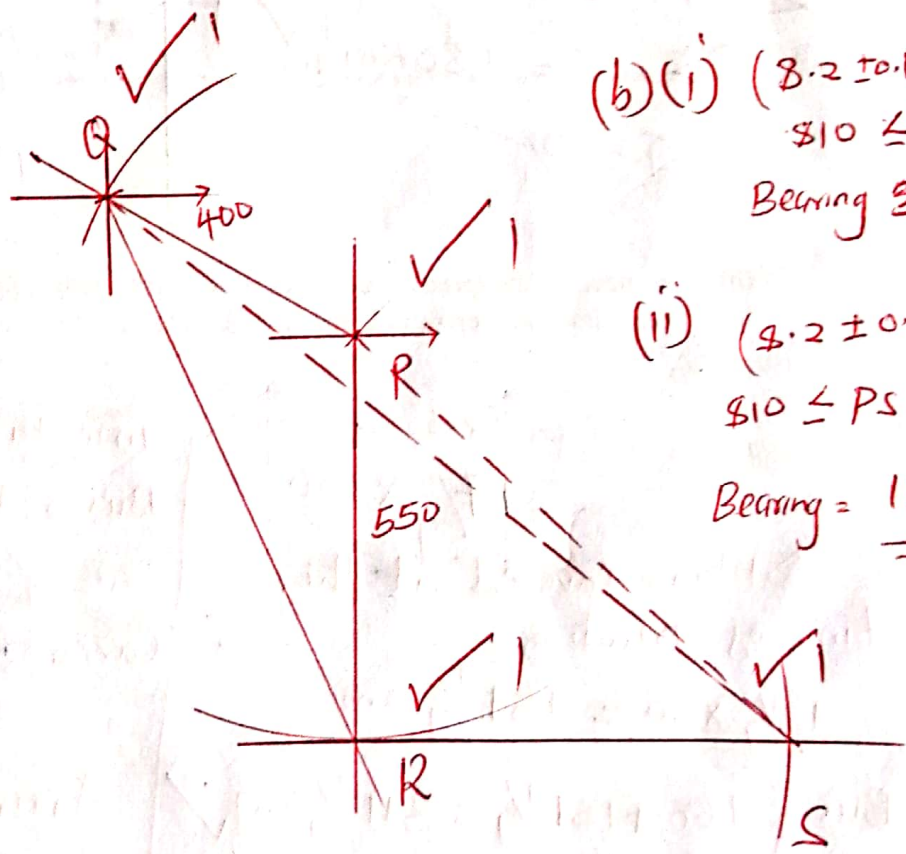 1
Q
400
1
R
550
1
1
R
S
(b)(i) (8.2 ±0.
810 ≤
Bearing
(ii) (8.2 ± 0.
810 ≤ PS
Bearing = 1